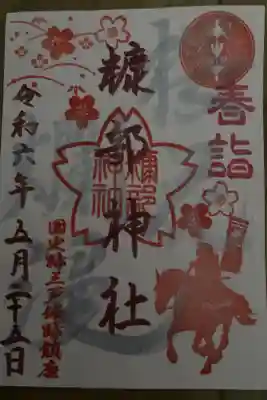 春詣
糠部神社
糠部
神社
国史跡三戸城跡鎮座
令和六年五月二十五日